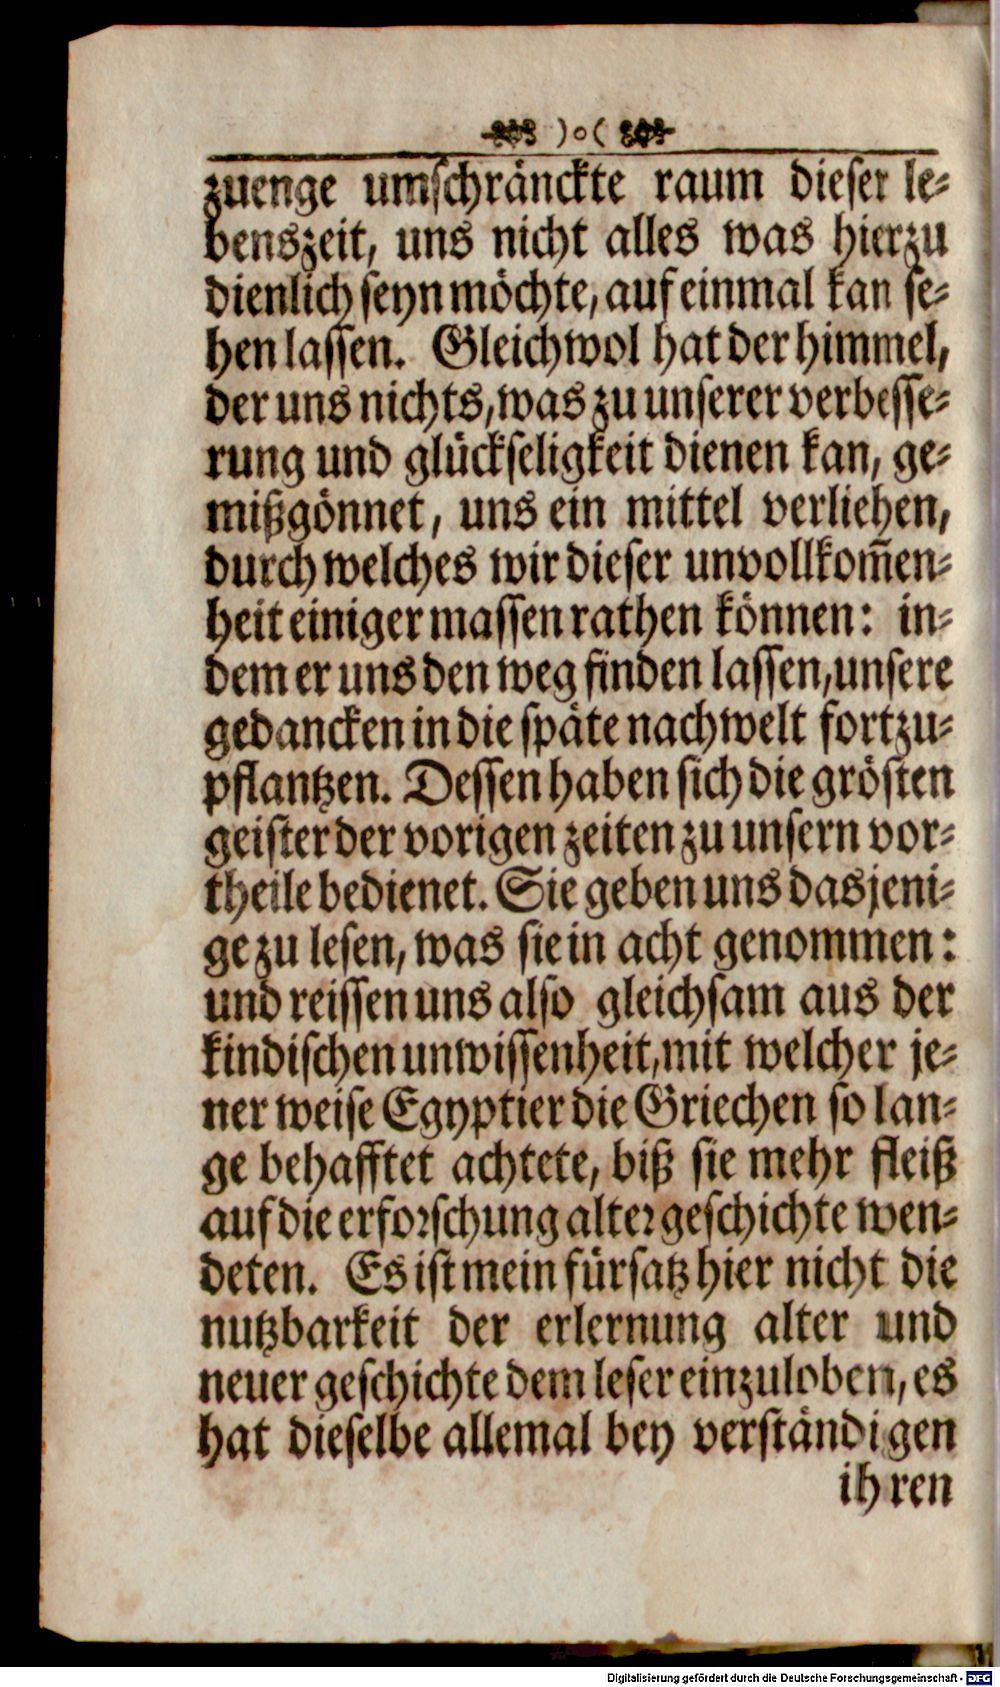 )o(
zuenge umschränckte raum dieser le-
benszeit, uns nicht alles was hierzu
dienlich seyn möchte, auf einmal kan se-
hen lassen. Gleichwol hat der himmel,
der uns nichts, was zu unserer verbesse-
rung und glückseligkeit dienen kan, ge-
mißgönnet, uns ein mittel verliehen,
durch welches wir dieser unvollkom̃en-
heit einiger massen rathen können: in-
dem er uns den weg finden lassen, unsere
gedancken in die späte nachwelt fortzu-
pflantzen. Dessen haben sich die grösten
geister der vorigen zeiten zu unsern vor-
theile bedienet. Sie geben uns dasjeni-
ge zu lesen, was sie in acht genommen:
und reissen uns also gleichsam aus der
kindischen unwissenheit, mit welcher je-
ner weise Egyptier die Griechen so lan-
ge behafftet achtete, biß sie mehr fleiß
auf die erforschung alter geschichte wen-
deten. Es ist mein fürsatz hier nicht die
nutzbarkeit der erlernung alter und
neuer geschichte dem leser einzuloben, es
hat dieselbe allemal bey verständigen
ihren
Digitalisierung gefördert durch die Deutsche Forschungsgemeinschaft - DFG